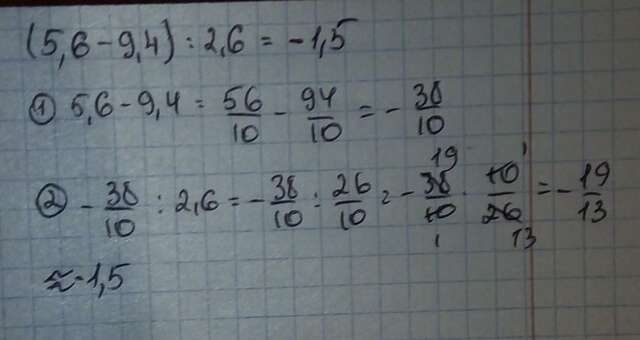 (5,6-9,4):2,6=-1,5
① 5,6-9,4=56/10-94/10=-38/10
② -38/10:2,6=-38/10:26/10=-38/10·10/26=-19/13
19 1
1 13
≈-1,5